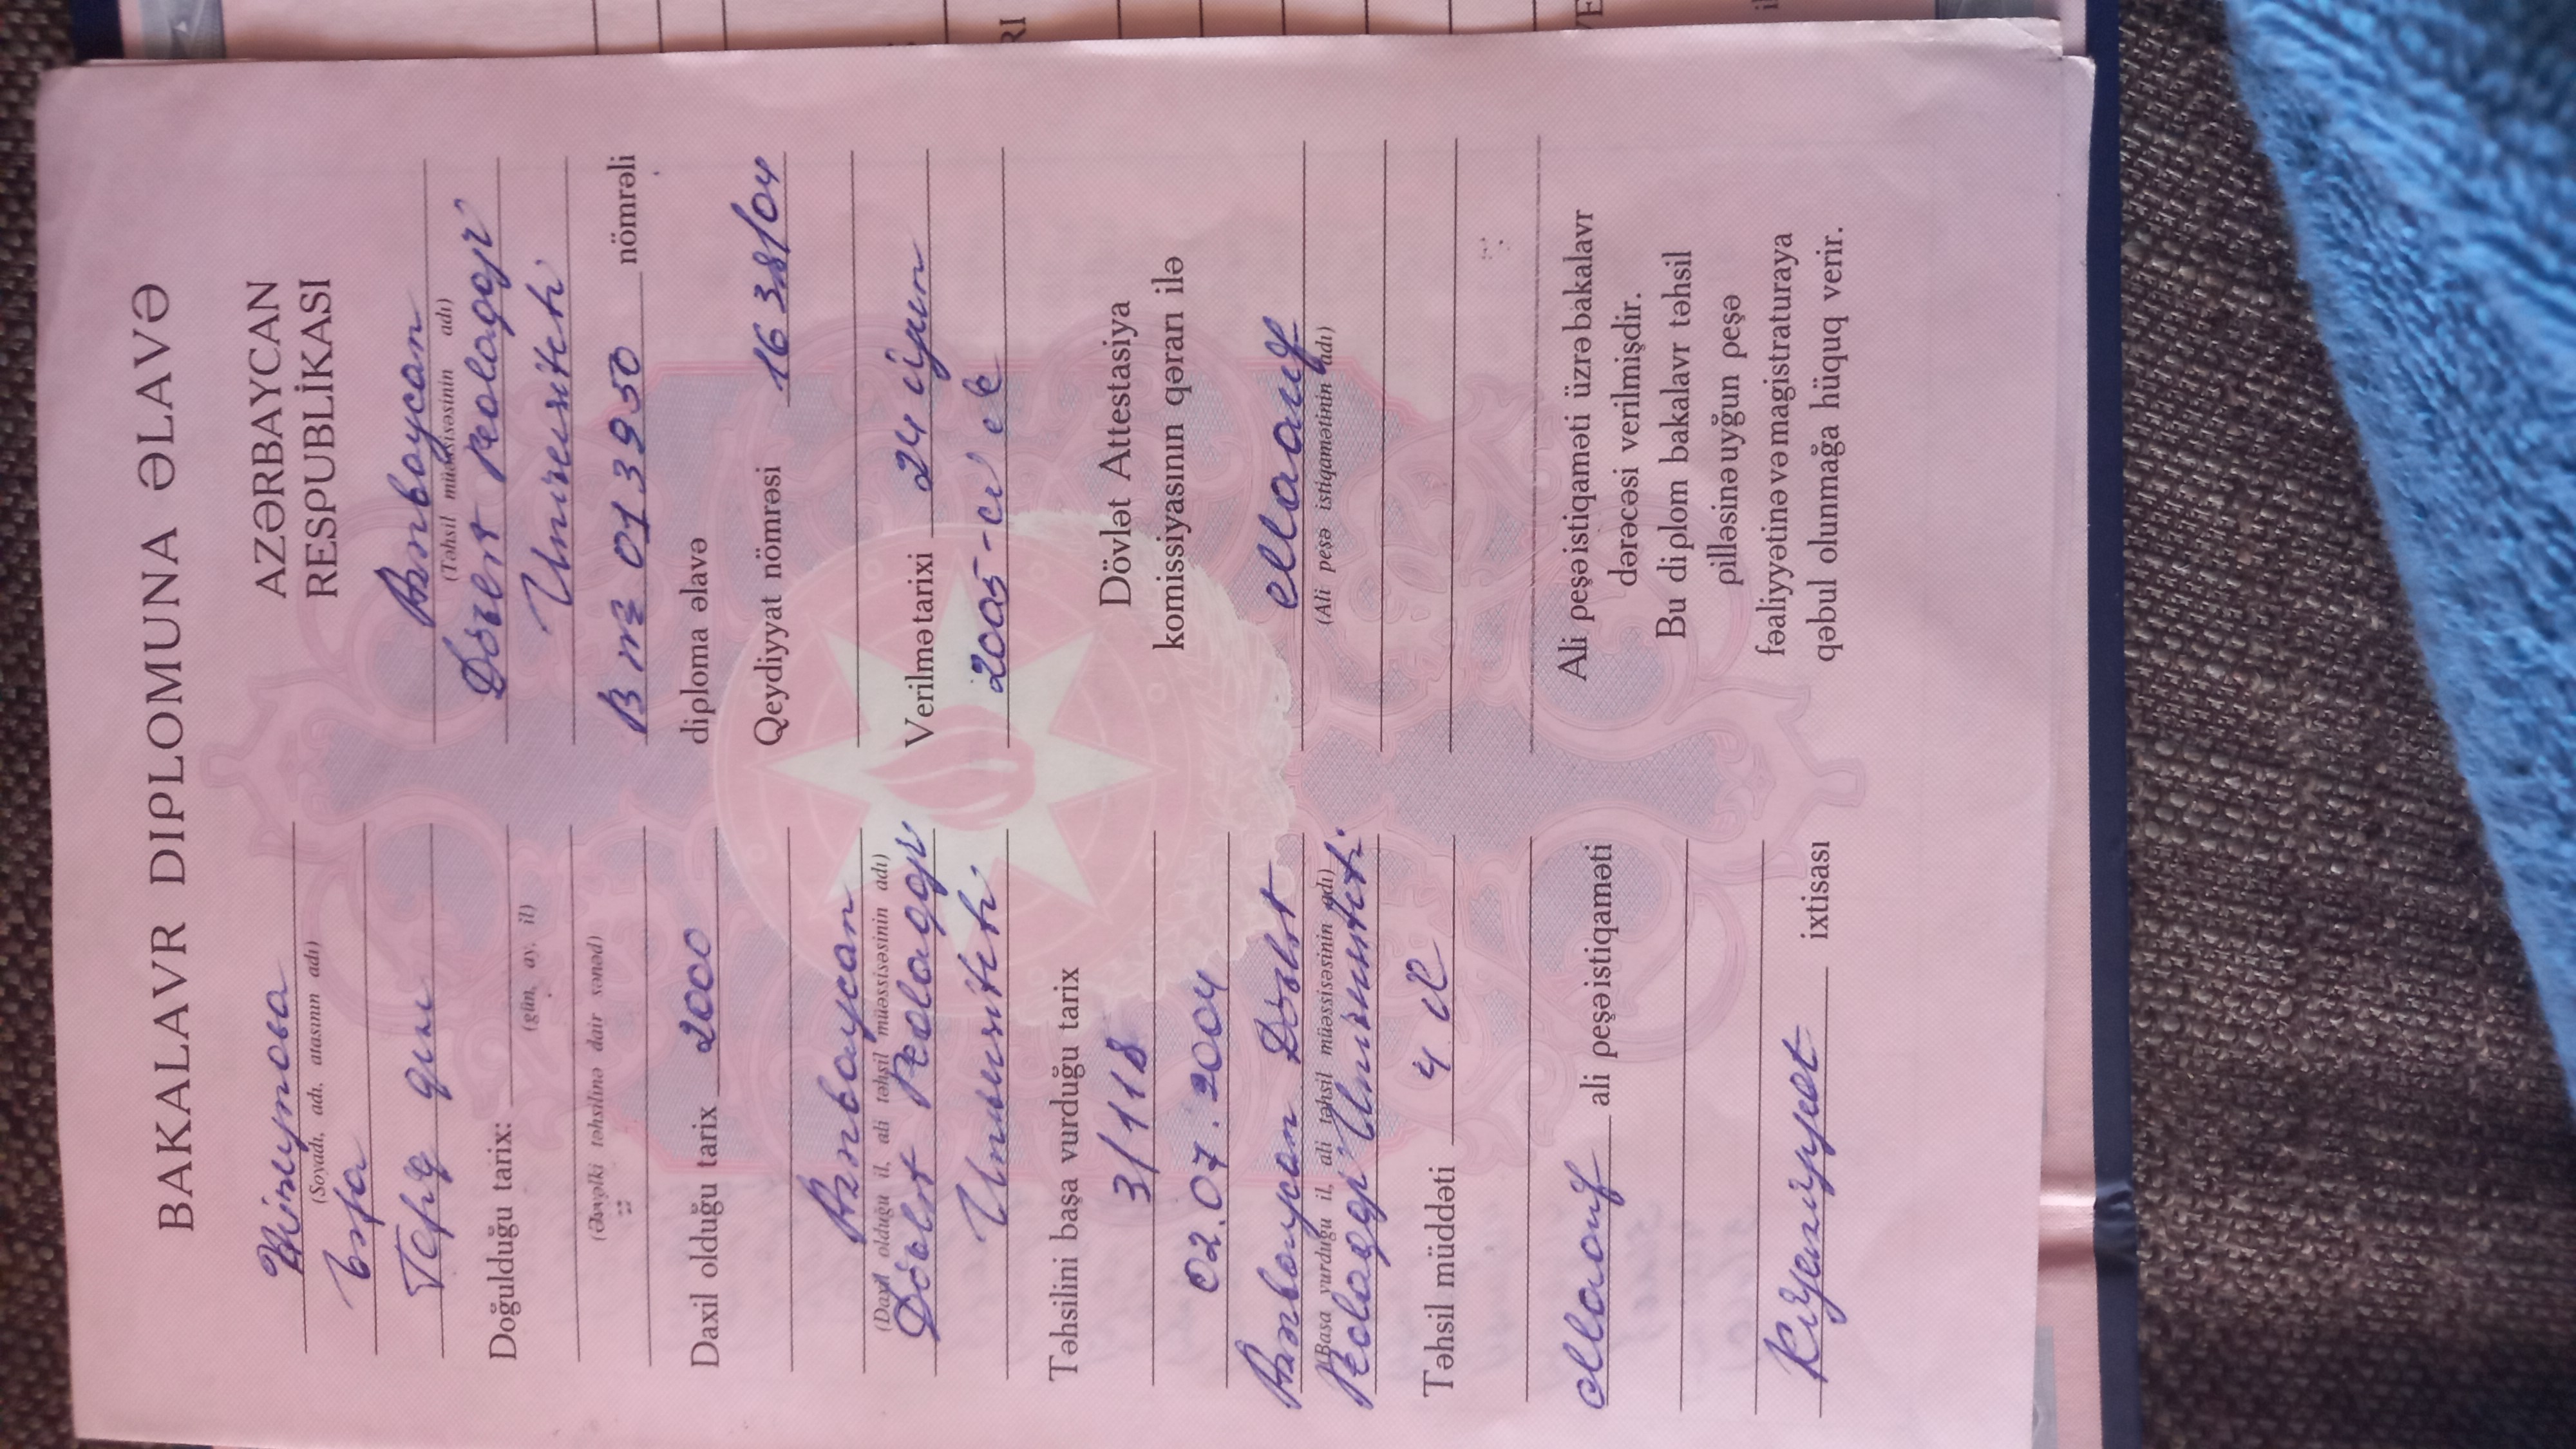 BAKALAVR DIPLOMUNA ƏLAVƏ
(Soyadı, adı, atasının adı)
qızı
Doğulduğu tarix:
(gün, ay, il)
(Əvvəlki təhsilinə dair sənəd)
Daxil olduğu tarix 2000
Azərbaycan
(Daxil olduğu il, ali təhsil müəssisəsinin adı)
Dövlət Pedaqoji
Universiteti
Təhsilini başa vurduğu tarix
3/118
02.07.2004
Azərbaycan Dövlət
(Başa vurduğu il, ali təhsil müəssisəsinin adı)
Pedaqoji Universiteti.
Təhsil müddəti 4 il
ali peşə istiqaməti
ixtisası
AZƏRBAYCAN
RESPUBLİKASI
Azərbaycan
(Təhsil müəssisəsinin adı)
Dövlət Pedaqoji
Universiteti
013950 nömrəli
diploma əlavə
Qeydiyyat nömrəsi 1638/04
Verilmə tarixi 24 iyun
2005-ci il
Dövlət Attestasiya
komissiyasının qərarı ilə
(Ali peşə istiqamətinin adı)
Ali peşə istiqaməti üzrə bakalavr
dərəcəsi verilmişdir.
Bu diplom bakalavr təhsil
pilləsinə uyğun peşə
fəaliyyətinə və magistraturaya
qəbul olunmağa hüquq verir.